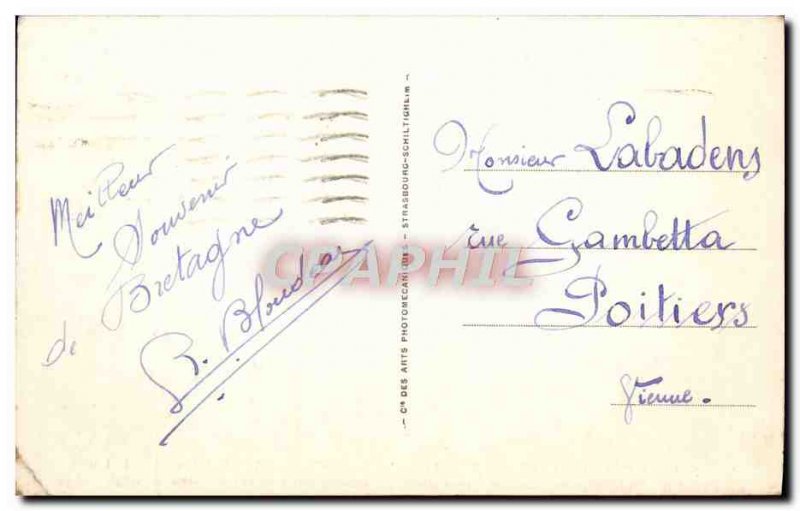 Meilleur
Souvenir
de Bretagne
Cie DES ARTS PHOTOMECANIQUES - STRASBOURG-SCHILTIGHEIM
Monsieur Labadens
rue Gambetta
Poitiers
Vienne.
CPAPHIL